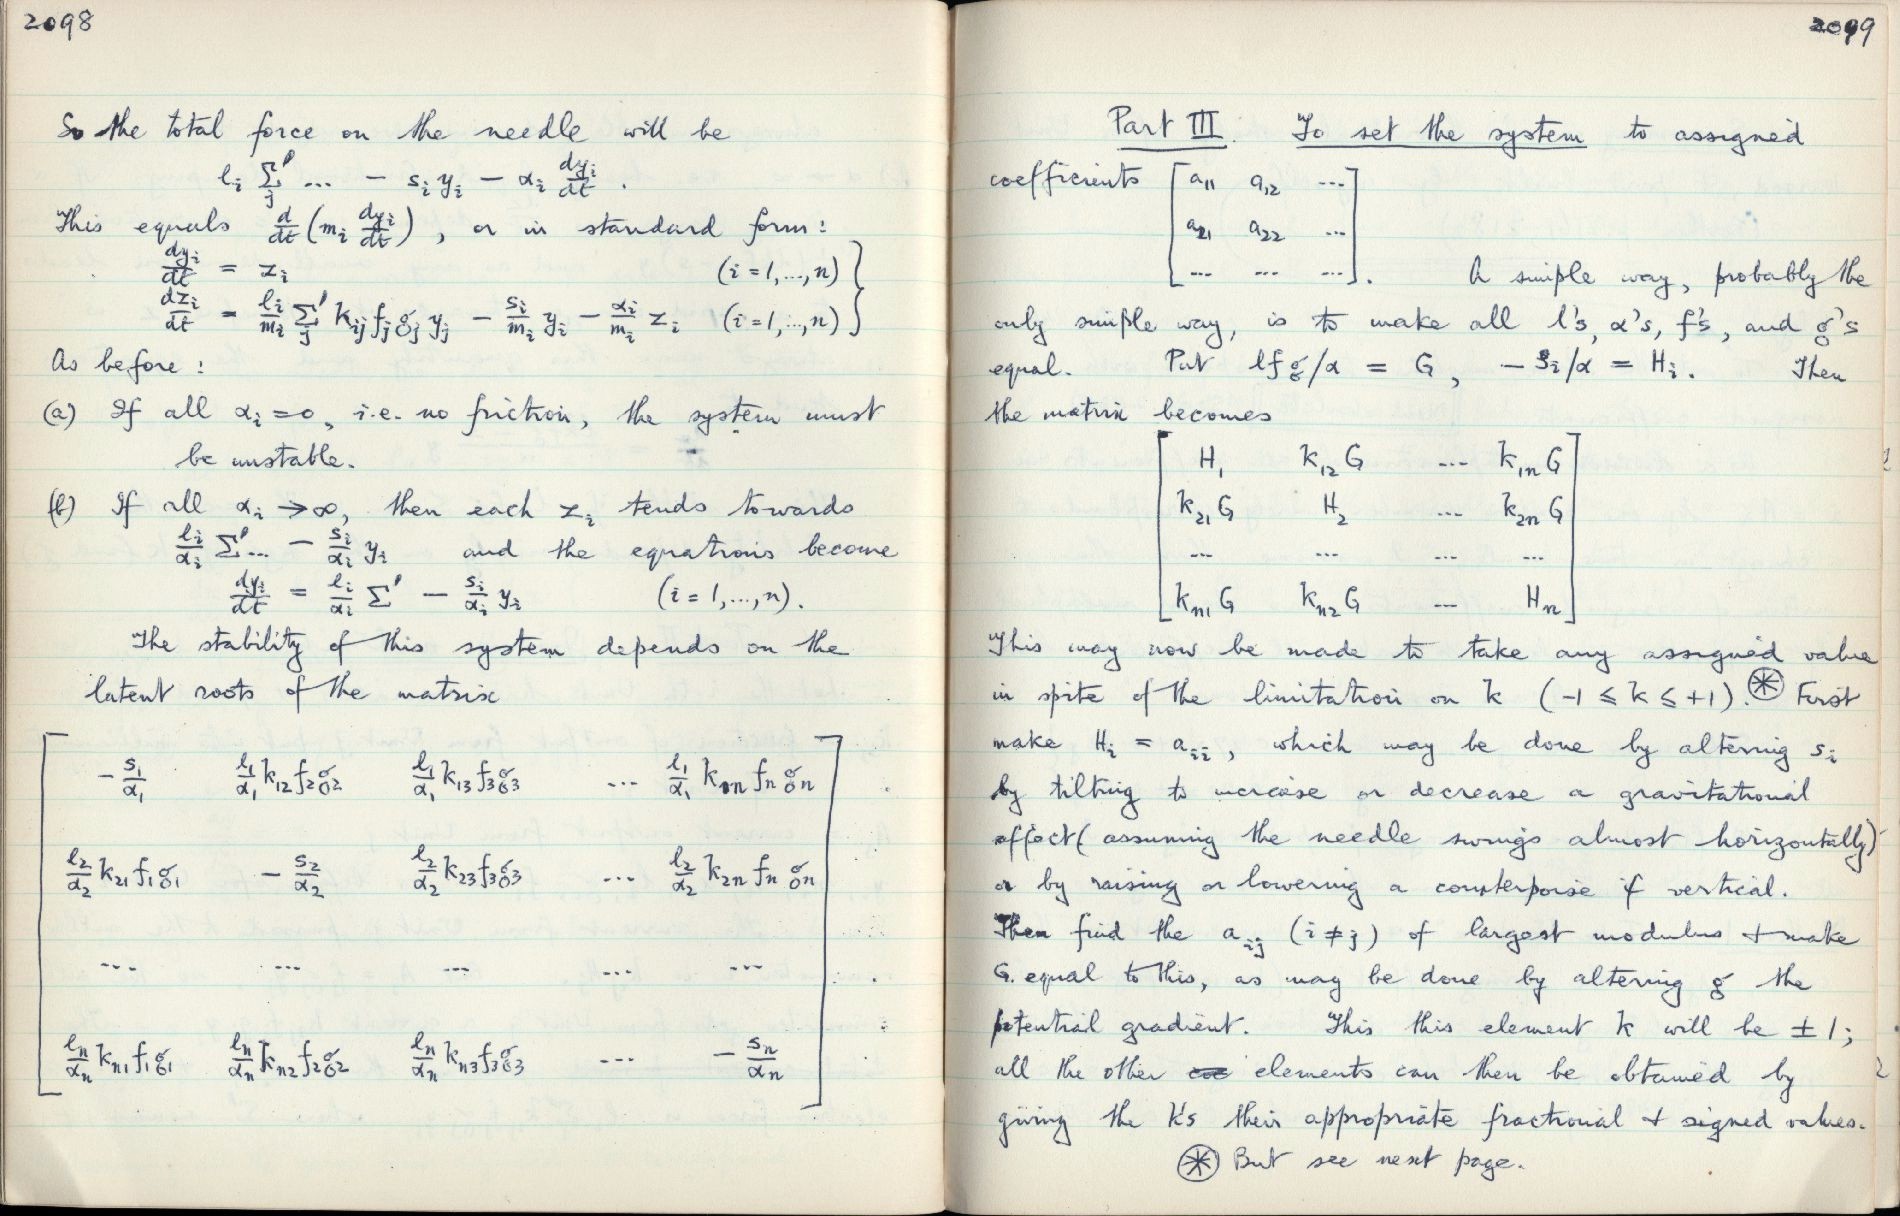 2098
So the total force on the needle will be
l_i Σ'_j ... − s_i y_i − α_i dy_i/dt .
This equals d/dt (m_i dy_i/dt) , or in standard form :
dy_i/dt = z_i (i = 1, ..., n)
dz_i/dt = l_i/m_i Σ'_j k_ij f_j g_j y_j − s_i/m_i y_i − α_i/m_i z_i (i = 1, ..., n) }
As before :
(a) If all α_i = 0, i.e. no friction, the system must
be unstable.
(b) If all α_i → ∞, then each z_i tends towards
l_i/α_i Σ' ... − s_i/α_i y_i and the equations become
dy_i/dt = l_i/α_i Σ' − s_i/α_i y_i (i = 1, ..., n).
The stability of this system depends on the
latent roots of the matrix
− s_1/α_1 l_1/α_1 k_12 f_2 g_2 l_1/α_1 k_13 f_3 g_3 ... l_1/α_1 k_1n f_n g_n
l_2/α_2 k_21 f_1 g_1 − s_2/α_2 l_2/α_2 k_23 f_3 g_3 ... l_2/α_2 k_2n f_n g_n
... ... ... ... ...
l_n/α_n k_n1 f_1 g_1 l_n/α_n k_n2 f_2 g_2 l_n/α_n k_n3 f_3 g_3 ... − s_n/α_n
2099
Part III. To set the system to assigned
coefficients [ a_11 a_12 ...
a_21 a_22 ...
... ... ... ]. A simple way, probably the
only simple way, is to make all l's, α's, f's, and g's
equal. Put lfg/α = G, − s_i/α = H_i. Then
the matrix becomes
H_1 k_12 G ... k_1n G
k_21 G H_2 ... k_2n G
... ... ... ...
k_n1 G k_n2 G ... H_n
This may now be made to take any assigned value
in spite of the limitation on k (−1 ≤ k ≤ +1). ⊛ First
make H_i = a_ii, which may be done by altering s_i
by tilting to increase or decrease a gravitational
effect (assuming the needle swings almost horizontally)
or by raising or lowering a counterpoise if vertical.
Then find the a_ij (i ≠ j) of largest modulus + make
G equal to this, as may be done by altering g the
potential gradient. This this element k will be ± 1;
all the other elements can then be obtained by
giving the k's their appropriate fractional + signed values.
⊛ But see next page.